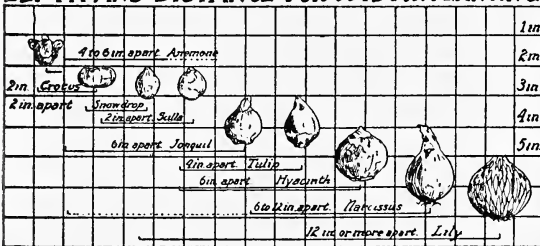 DEPTH AND DISTANCE FOR
1 in
4 to 6 in. apart Anemone
2 in
2 in. Crocus
3 in
2 in. apart Snowdrop
2 in. apart Scilla
4 in
6 in apart Jonquil
5 in
4 in. apart Tulip
6 in. apart Hyacinth
6 to 12 in. apart. Narcissus
12 in. or more apart. Lily